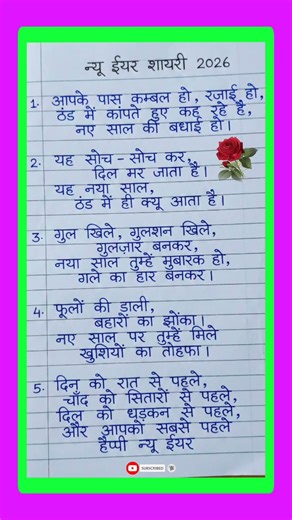 न्यू ईयर शायरी 2026
1. आपके पास कम्बल हो, रजाई हो,
ठंड में कांपते हुए कह रहे है,
नए साल की बधाई हो।
2. यह सोच-सोच कर,
दिल मर जाता है।
यह नया साल,
ठंड में ही क्यू आता है।
3. गुल खिले, गुलशन खिले,
गुलज़ार बनकर,
नया साल तुम्हें मुबारक हो,
गले का हार बनकर।
4. फूलों की डाली,
बहारों का झोंका।
नए साल पर तुम्हें मिले
खुशियों का तोहफा।
5. दिन को रात से पहले,
चाँद को सितारों से पहले,
दिल को धड़कन से पहले,
और आपको सबसे पहले
हैप्पी न्यू ईयर
SUBSCRIBED